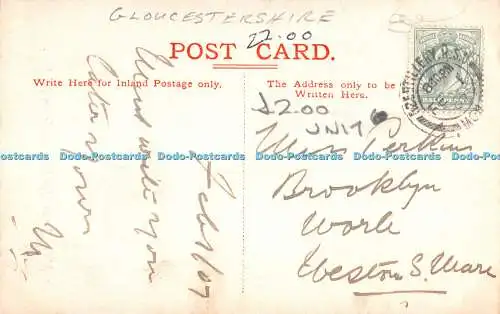 GLOUCESTERSHIRE
£2.00
POST CARD.
Write Here for Inland Postage only.
The Address only to be
Written Here.
£2.00
UNIT 6
HALF PENNY
Feb 1/07
Will write you
Later
Yours
Miss Perkins
Brooklyn
Worle
Weston S. Mare
Dodo-Postcards Dodo-Postcards Dodo-Postcards Dodo-Postcards Dodo-Postcards Dodo-Postcards